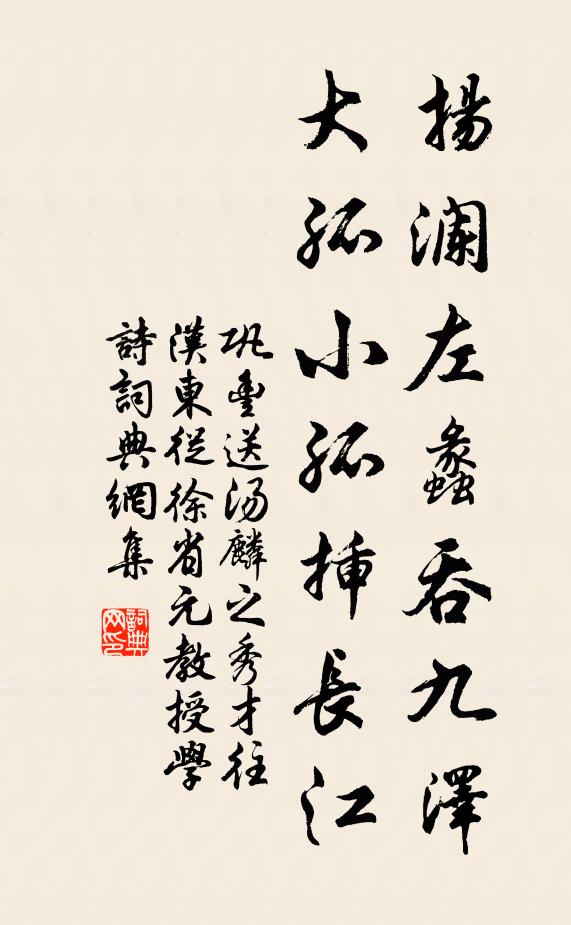 揚瀾左蠡吞九澤
大孤小孤挿長江
巩豊送汤麟之秀才往
漢東從徐省元教授學
詩詞典網集
詞典
网印